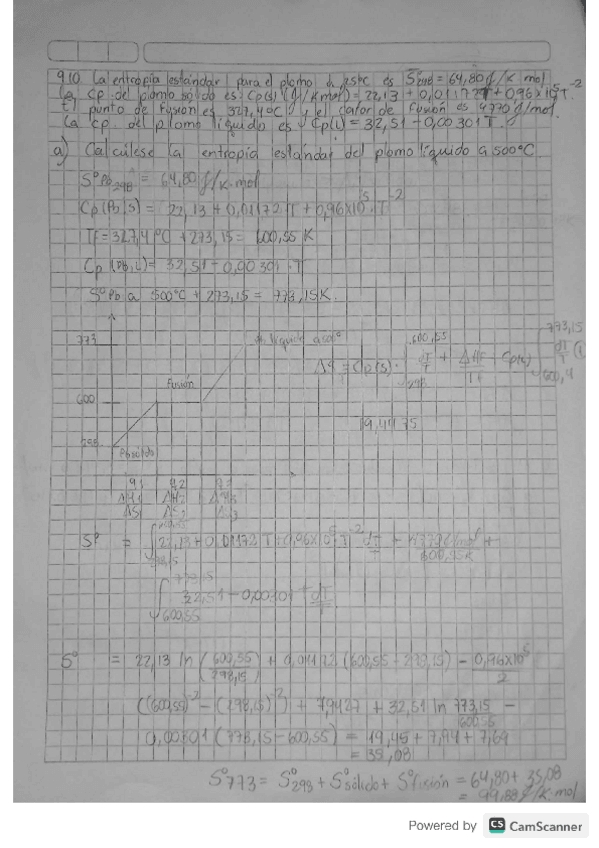 9.10 La entropía estándar para el plomo a 25°C es S°298 = 64,80 J/K mol
La Cp del plomo sólido es: Cp(s) (J/Kmol) = 22,13 + 0,01172T + 0,96x10⁵T⁻²
punto de fusión es 327,4°C y el calor de fusión es 4770 J/mol.
La cp del plomo líquido es Cp(l) = 32,51 - 0,00301T.
a) Calcúlese la entropía estándar del plomo líquido a 500°C
S°Pb298 = 64,80 J/K·mol
Cp(Pb,s) = 22,13 + 0,01172 T + 0,96x10⁵ · T⁻²
Tf = 327,4°C + 273,15 = 600,55 K
Cp(Pb,L) = 32,51 - 0,00301 · T
S°Pb a 500°C + 273,15 = 773,15K.
773
Fusión
600
298
Pb sólido
ΔS = Cp(s) · ∫ 298 600,55 dT/T + ΔHf/Tf - Cp(l) 773,15 dT/T
19,4475
q1 q2 q3
ΔH1 ΔH2 ΔH3
ΔS1 ΔS2 ΔS3
S° = ∫ 22,13 + 0,01172 T + 0,96x10⁵T⁻² dT/T + 4770 J/mol / 600,55K +
∫ 773,15 600,55 32,51 - 0,00301 T dT/T
S° = 22,13 ln (600,55/298,15) + 0,01172 (600,55 - 298,15) - 0,96x10⁵/2
((600,55)⁻² - (298,15)⁻²) + 7,9427 + 32,51 ln 773,15/600,55 -
0,00301 (773,15 - 600,55) = 19,45 + 7,94 + 7,69
= 35,08
S°773 = S°298 + S°sólido + S°fusión = 64,80 + 35,08
= 99,88 J/K·mol
Powered by CS CamScanner